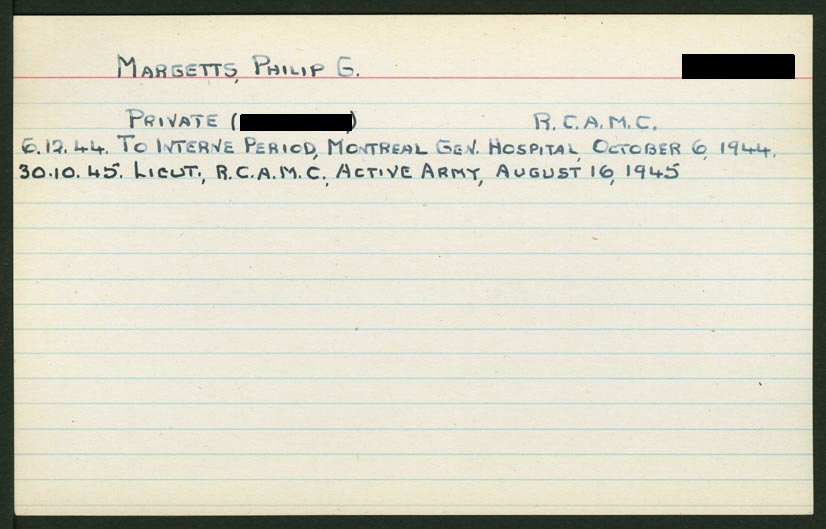 MARGETTS, PHILIP G.
PRIVATE ( ) R.C.A.M.C.
6.12.44. TO INTERNE PERIOD, MONTREAL GEN. HOSPITAL, OCTOBER 6, 1944.
30.10.45. LIEUT., R.C.A.M.C., ACTIVE ARMY, AUGUST 16, 1945